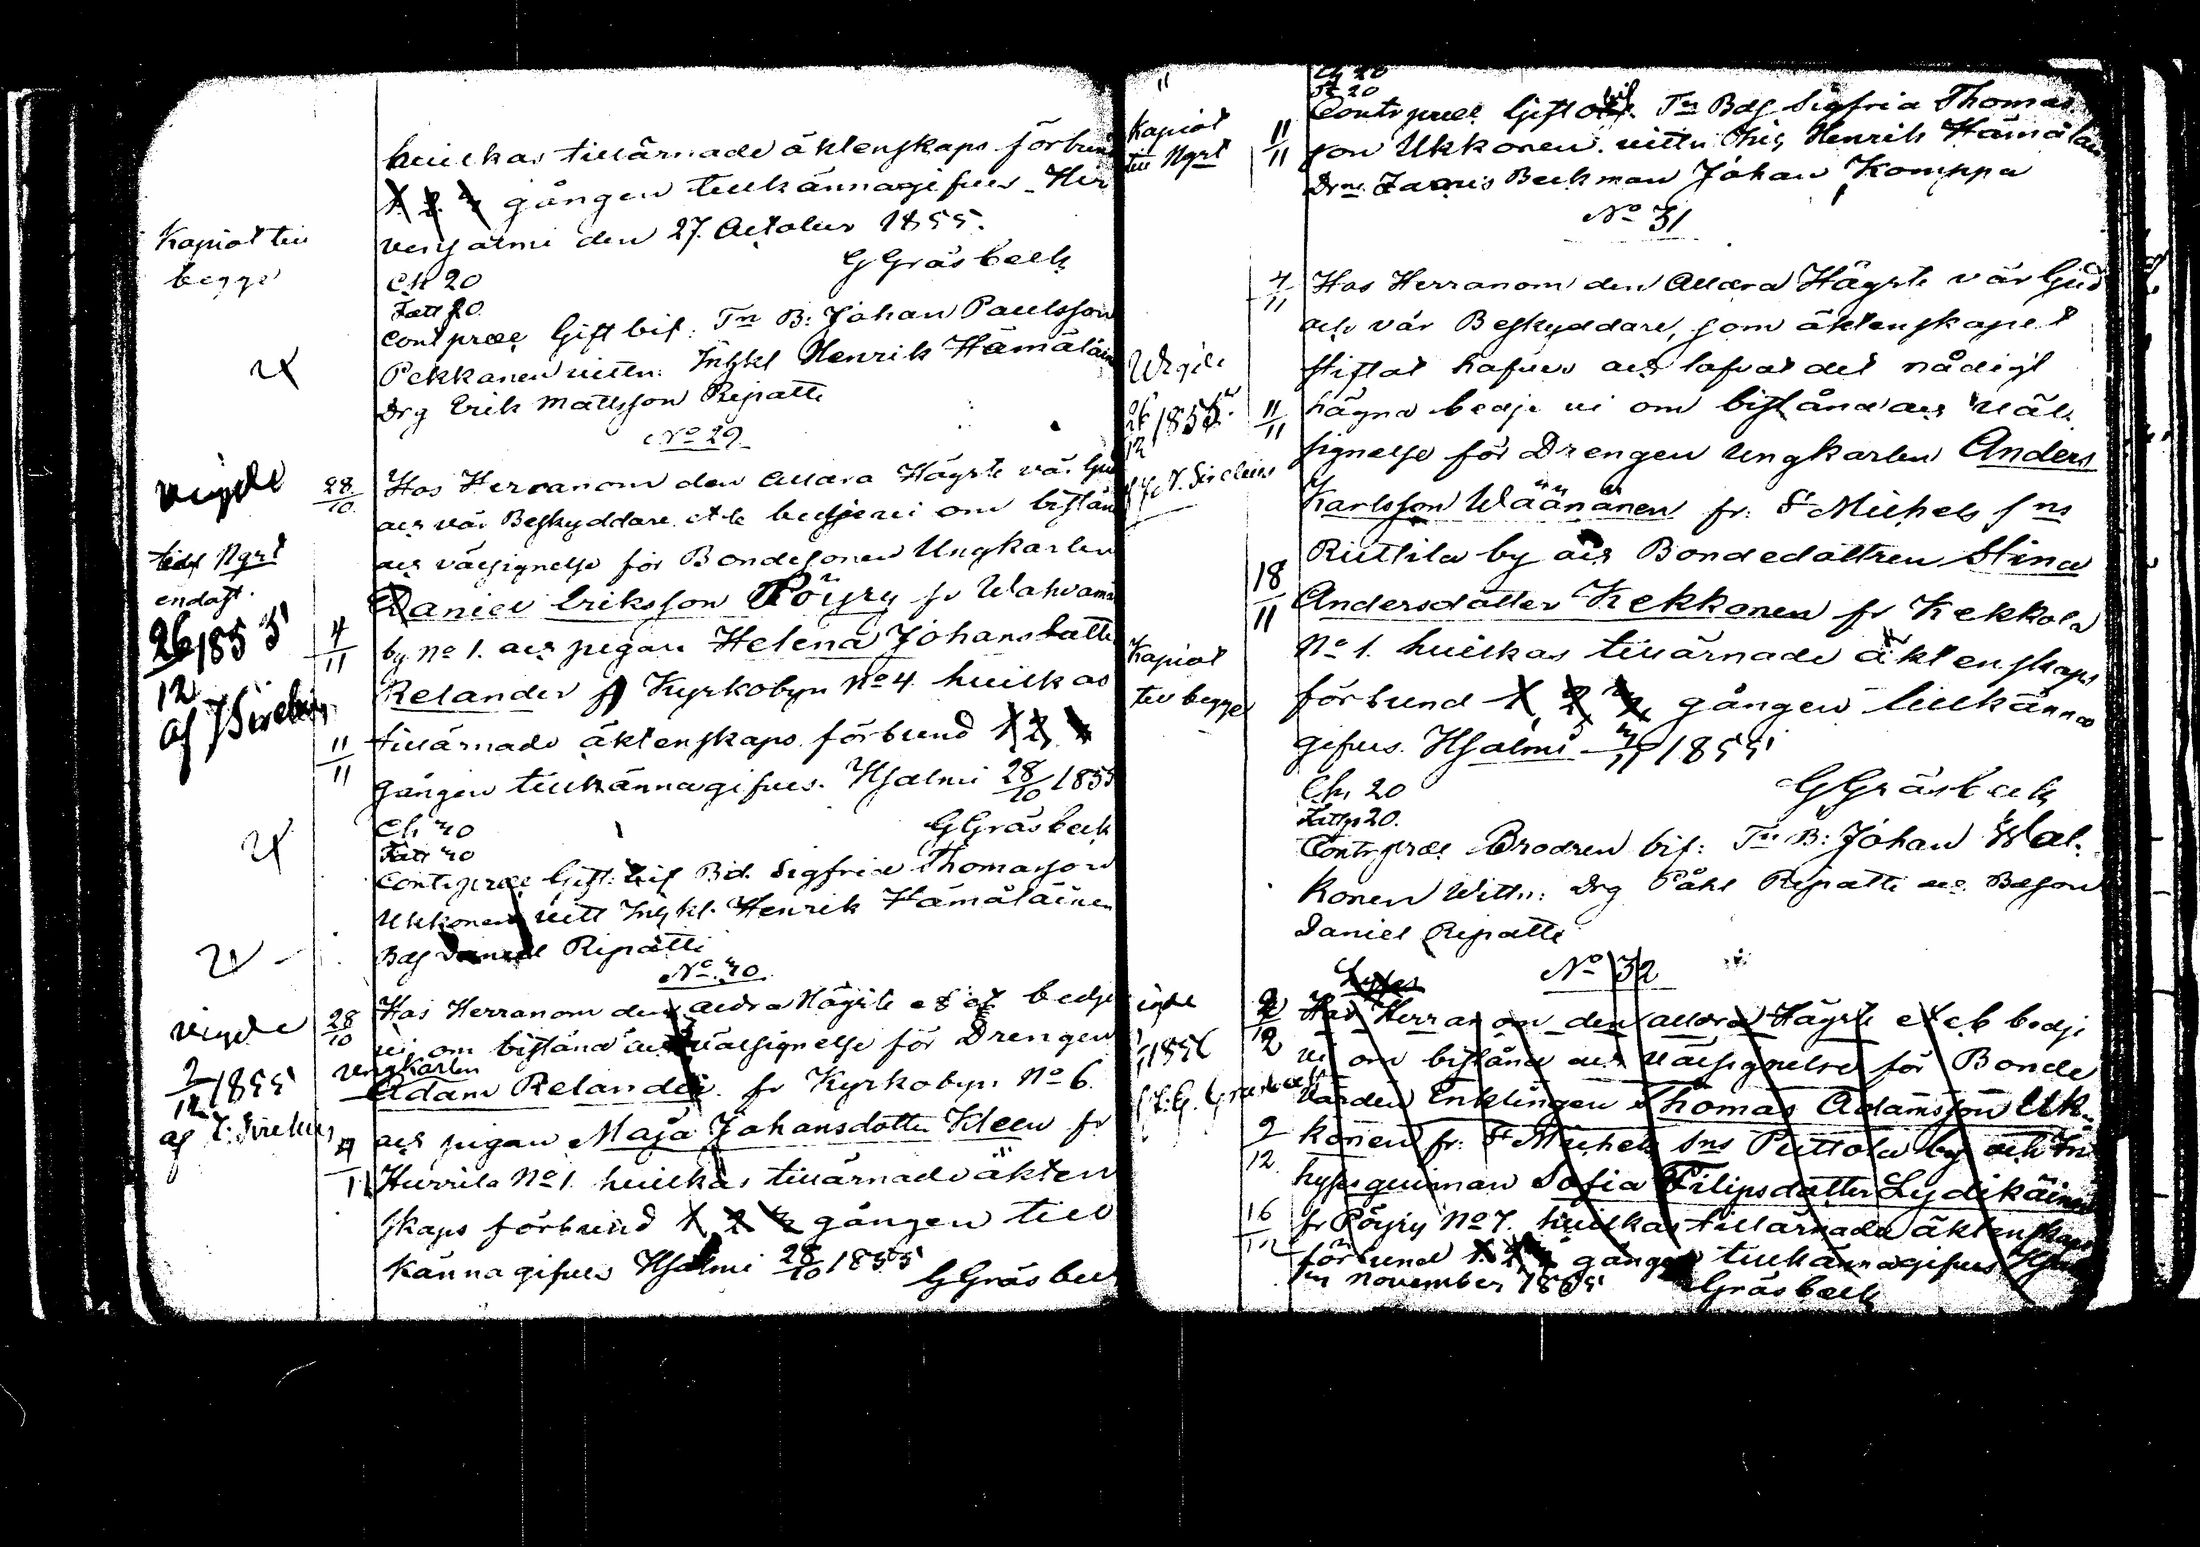 hvilkas tillärnade äktenskaps förbund
1. 2. 3 gången tillkännagifves. Hir
vensalmi den 27. October 1855.
Kapiat till
begge
GGräsbeck
Ch 20
Fatt 20
Contr præs Gift bif. Tn B: Johan Paulsson
Pekkanen vittn: Inhkl Henrik Hämäläin
Drg Erik Mattsson Ripatti
No 29
vigde
28/10
Hos Herranom den Allara Högste vår Gud
och vår Beskyddare etc bedje vi om bistån
och välsignelse för Bondesonen Ungkarlen
Daniel Eriksson Pöyry fr Wahvama
by No 1. och pigan Helena Johansdatte
Relander fr Kyrkobyn No 4 hvilkas
tillärnade äktenskaps förbund 1, 2, 3
gången tillkännagifves. Hsalmi 28/10 1855
Ngrt
endast.
26/12 1855
af J Sirelius
4/11
11/11
Ch 20
GGräsbeck
Fatt 20
Contr præs Gift. bif Bd. Sigfrid Thomasson
Ukkonen vitt Inhkl. Henrik Hämäläinen
Bdg Daniel Ripatti
No 30
vigde
2/12 1855
af J. Sirelius
28/10
Hos Herranom den aldra Högste etc bedje
vi om bistånd och välsignelse för Drengen
Ungkarlen
Adam Relander fr Kyrkobyn No 6.
och pigan Maja Johansdotter Kleen fr
Hurrila No 1. hvilkas tillärnade äkten
skaps förbund 1, 2, 3 gången till
känna gifves Hsalmi 28/10 1855
GGräsbeck
Kapiat
till Ngrt
11/11
Ch 20
Ft 20
Contr præs Gift bif. Tn Bdg Sigfrid Thomas
son Ukkonen. vittn Henrik Hämäläin
Drne Beckman Johan Komppa
No 31
4/11
Hos Herranom den Allara Högste vår Gud
och vår Beskyddare, som äktenskapet
stiftat hafver och lofvat det nådigt
hägna bedje vi om bistånd och väl
signelse för Drengen Ungkarlen Anders
Karlsson Wäänänen fr. St Michels sns
Riittila by och Bondedottren Stina
Andersdatter Kekkonen fr Kekkola
No 1. hvilkas tillärnade äktenskaps
förbund 1, 2, 3, gången tillkänna
gifves. Hsalmi 3/11 1855
Wigde
26/12 1855.
J. Sirelius
11/11
18/11
Kapiat
till begge
GGräsbeck
Ch, 20
Fattg 20.
Contr præs Brodren bif: Tn B: Johan Wal.
konen Wittn: Drg Påhl Ripatti och Bdson
Daniel Ripatti
No 32
2/12
Hos Herranom den allara Högste etc bedje
vi om bistånd och välsignelse för Bonde
värden Enklingen Thomas Adamsson Uk
konen fr. St Michels sns Puttola by och In
hyses qvinnan Sofia Filipsdatter Lydikäinen
fr Pöyry No 7. hvilkas tillärnade äktenskaps
förbund 1. 2. 3 gången tillkännagifves
november 1855
Gräsbeck
1856
9/12
16/12